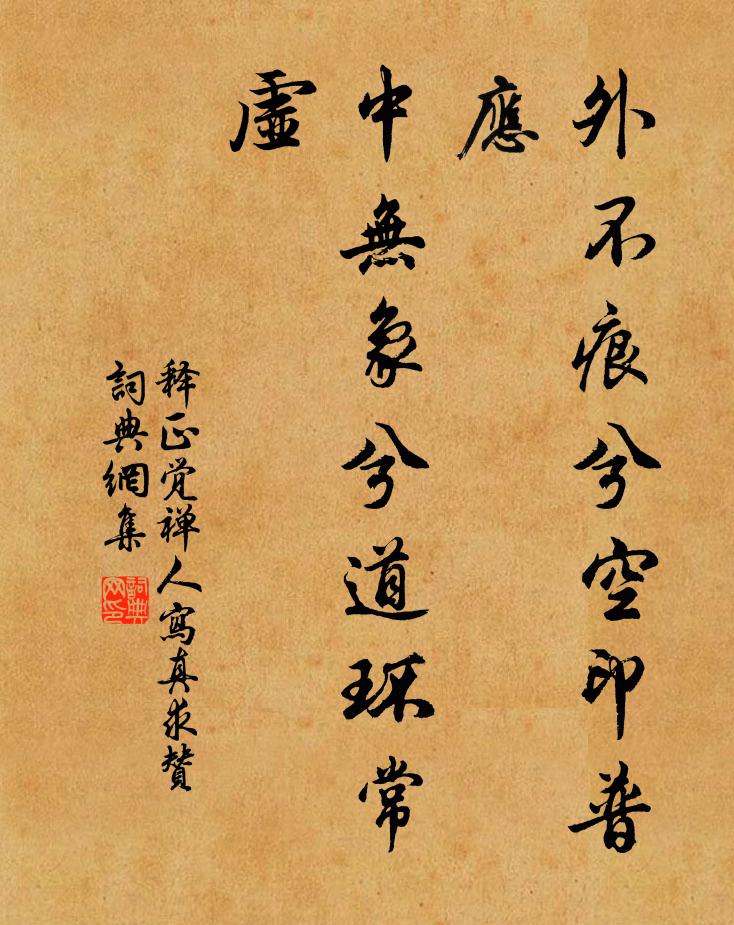 外不痕兮空印普
應
中無象兮道环常
虛
释正觉禅人寫真求贊
詞典網集
詞典网印